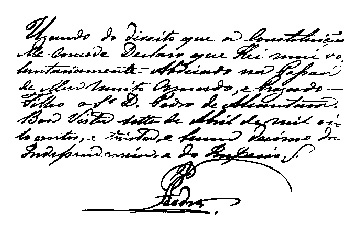 Uzando do direito que a Constituição
Me concede Declaro que Hei mui vo
luntariamente Abdicado na Pessoa
de Meu muito Amado, e Prezado
Filho o Sr. D. Pedro de Alcantara.
Boa Vista sette de Abril de mil oi
to centos, e trinta e hum decimo da
Independencia e do Imperio
Pedro